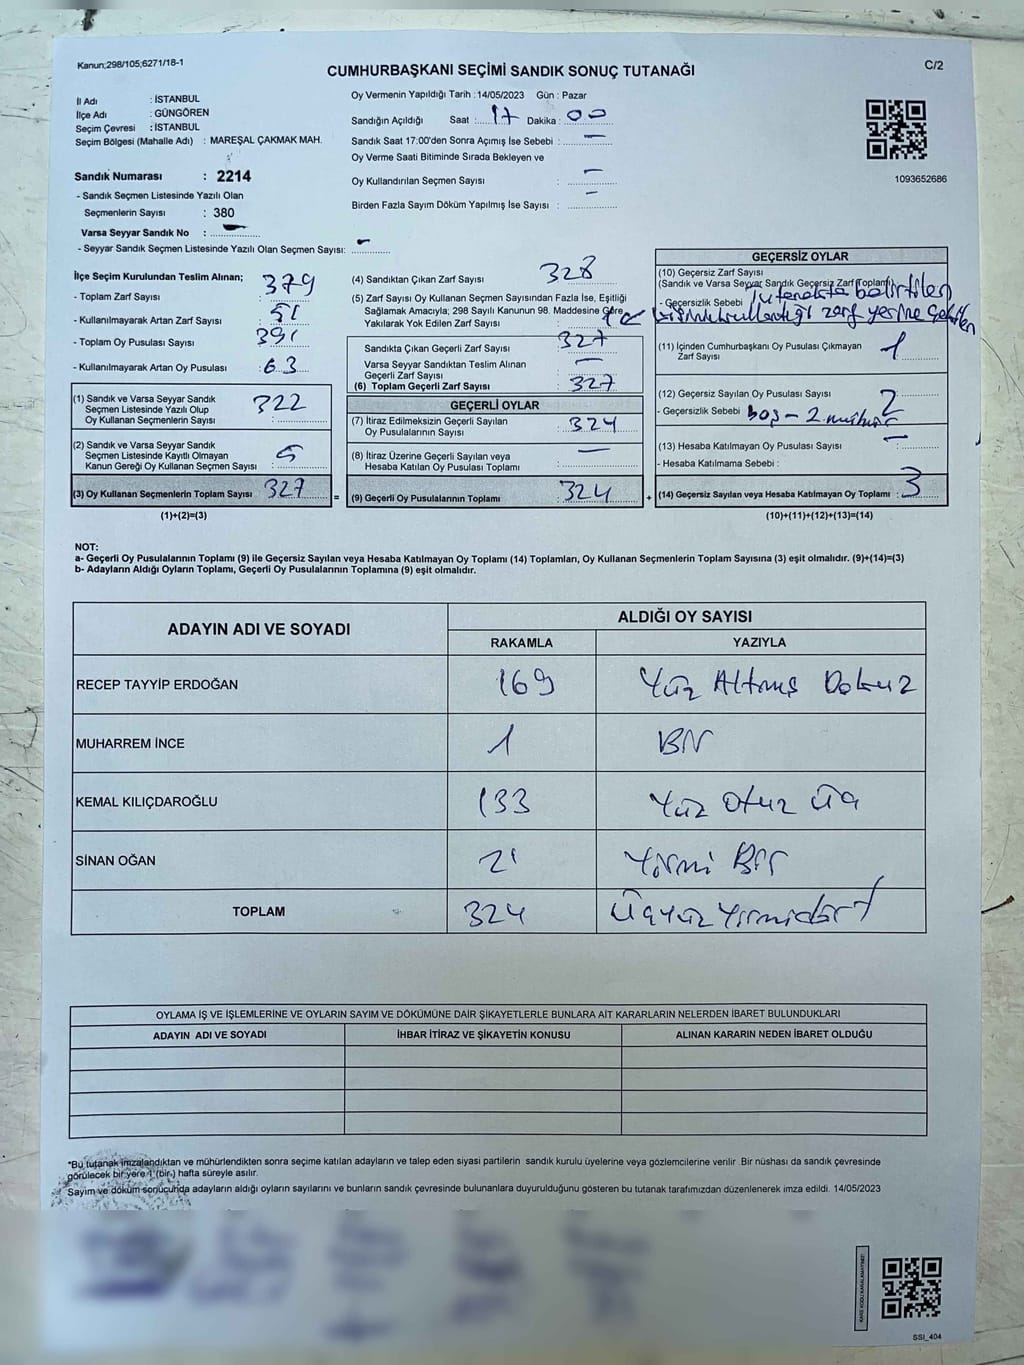 Kanun;298/105;6271/18-1
C/2
CUMHURBAŞKANI SEÇİMİ SANDIK SONUÇ TUTANAĞI
İl Adı : İSTANBUL
İlçe Adı : GÜNGÖREN
Seçim Çevresi : İSTANBUL
Seçim Bölgesi (Mahalle Adı) : MAREŞAL ÇAKMAK MAH.
Sandık Numarası : 2214
- Sandık Seçmen Listesinde Yazılı Olan
Seçmenlerin Sayısı : 380
Varsa Seyyar Sandık No : -
- Seyyar Sandık Seçmen Listesinde Yazılı Olan Seçmen Sayısı: -
Oy Vermenin Yapıldığı Tarih : 14/05/2023 Gün : Pazar
Sandığın Açıldığı Saat : 17 Dakika : 00
Sandık Saat 17:00'den Sonra Açımış İse Sebebi : -
Oy Verme Saati Bitiminde Sırada Bekleyen ve
Oy Kullandırılan Seçmen Sayısı : -
Birden Fazla Sayım Döküm Yapılmış İse Sayısı : -
1093652686
İlçe Seçim Kurulundan Teslim Alınan;
- Toplam Zarf Sayısı : 379
- Kullanılmayarak Artan Zarf Sayısı : 51
- Toplam Oy Pusulası Sayısı : 391
- Kullanılmayarak Artan Oy Pusulası : 63
(1) Sandık ve Varsa Seyyar Sandık
Seçmen Listesinde Yazılı Olup
Oy Kullanan Seçmenlerin Sayısı : 322
(2) Sandık ve Varsa Seyyar Sandık
Seçmen Listesinde Kayıtlı Olmayan
Kanun Gereği Oy Kullanan Seçmen Sayısı : 5
(3) Oy Kullanan Seçmenlerin Toplam Sayısı 327
(1)+(2)=(3)
(4) Sandıktan Çıkan Zarf Sayısı : 328
(5) Zarf Sayısı Oy Kullanan Seçmen Sayısından Fazla İse, Eşitliği
Sağlamak Amacıyla; 298 Sayılı Kanunun 98. Maddesine Göre
Yakılarak Yok Edilen Zarf Sayısı : 1
Sandıkta Çıkan Geçerli Zarf Sayısı : 327
Varsa Seyyar Sandıktan Teslim Alınan
Geçerli Zarf Sayısı : -
(6) Toplam Geçerli Zarf Sayısı : 327
GEÇERLİ OYLAR
(7) İtiraz Edilmeksizin Geçerli Sayılan
Oy Pusulalarının Sayısı : 324
(8) İtiraz Üzerine Geçerli Sayılan veya
Hesaba Katılan Oy Pusulası Toplamı : -
= (9) Geçerli Oy Pusulalarının Toplamı : 324 +
GEÇERSİZ OYLAR
(10) Geçersiz Zarf Sayısı
(Sandık ve Varsa Seyyar Sandık Geçersiz Zarf Toplamı)
- Geçersizlik Sebebi : Tutanakta belirtilen
zarf yerine
(11) İçinden Cumhurbaşkanı Oy Pusulası Çıkmayan
Zarf Sayısı : 1
(12) Geçersiz Sayılan Oy Pusulası Sayısı : 2
- Geçersizlik Sebebi : Boş - 2 mühür
(13) Hesaba Katılmayan Oy Pusulası Sayısı : -
- Hesaba Katılmama Sebebi :
(14) Geçersiz Sayılan veya Hesaba Katılmayan Oy Toplamı : 3
(10)+(11)+(12)+(13)=(14)
NOT:
a- Geçerli Oy Pusulalarının Toplamı (9) ile Geçersiz Sayılan veya Hesaba Katılmayan Oy Toplamı (14) Toplamları, Oy Kullanan Seçmenlerin Toplam Sayısına (3) eşit olmalıdır. (9)+(14)=(3)
b- Adayların Aldığı Oyların Toplamı, Geçerli Oy Pusulalarının Toplamına (9) eşit olmalıdır.
ADAYIN ADI VE SOYADI
ALDIĞI OY SAYISI
RAKAMLA YAZIYLA
RECEP TAYYİP ERDOĞAN 169 Yüz Altmış Dokuz
MUHARREM İNCE 1 Bir
KEMAL KILIÇDAROĞLU 133 Yüz Otuz Üç
SİNAN OĞAN 21 Yirmi Bir
TOPLAM 324 Üçyüz Yirmidört
OYLAMA İŞ VE İŞLEMLERİNE VE OYLARIN SAYIM VE DÖKÜMÜNE DAİR ŞİKAYETLERLE BUNLARA AİT KARARLARIN NELERDEN İBARET BULUNDUKLARI
ADAYIN ADI VE SOYADI İHBAR İTİRAZ VE ŞİKAYETİN KONUSU ALINAN KARARIN NEDEN İBARET OLDUĞU
*Bu tutanak imzalandıktan ve mühürlendikten sonra seçime katılan adayların ve talep eden siyasi partilerin sandık kurulu üyelerine veya gözlemcilerine verilir Bir nüshası da sandık çevresinde
görülecek bir yere 1 (bir) hafta süreyle asılır.
Sayım ve döküm sonucunda adayların aldığı oyların sayılarını ve bunların sandık çevresinde bulunanlara duyurulduğunu gösteren bu tutanak tarafımızdan düzenlenerek imza edildi. 14/05/2023
KARE KODU KARALAMAYINIZ!
SSI_404